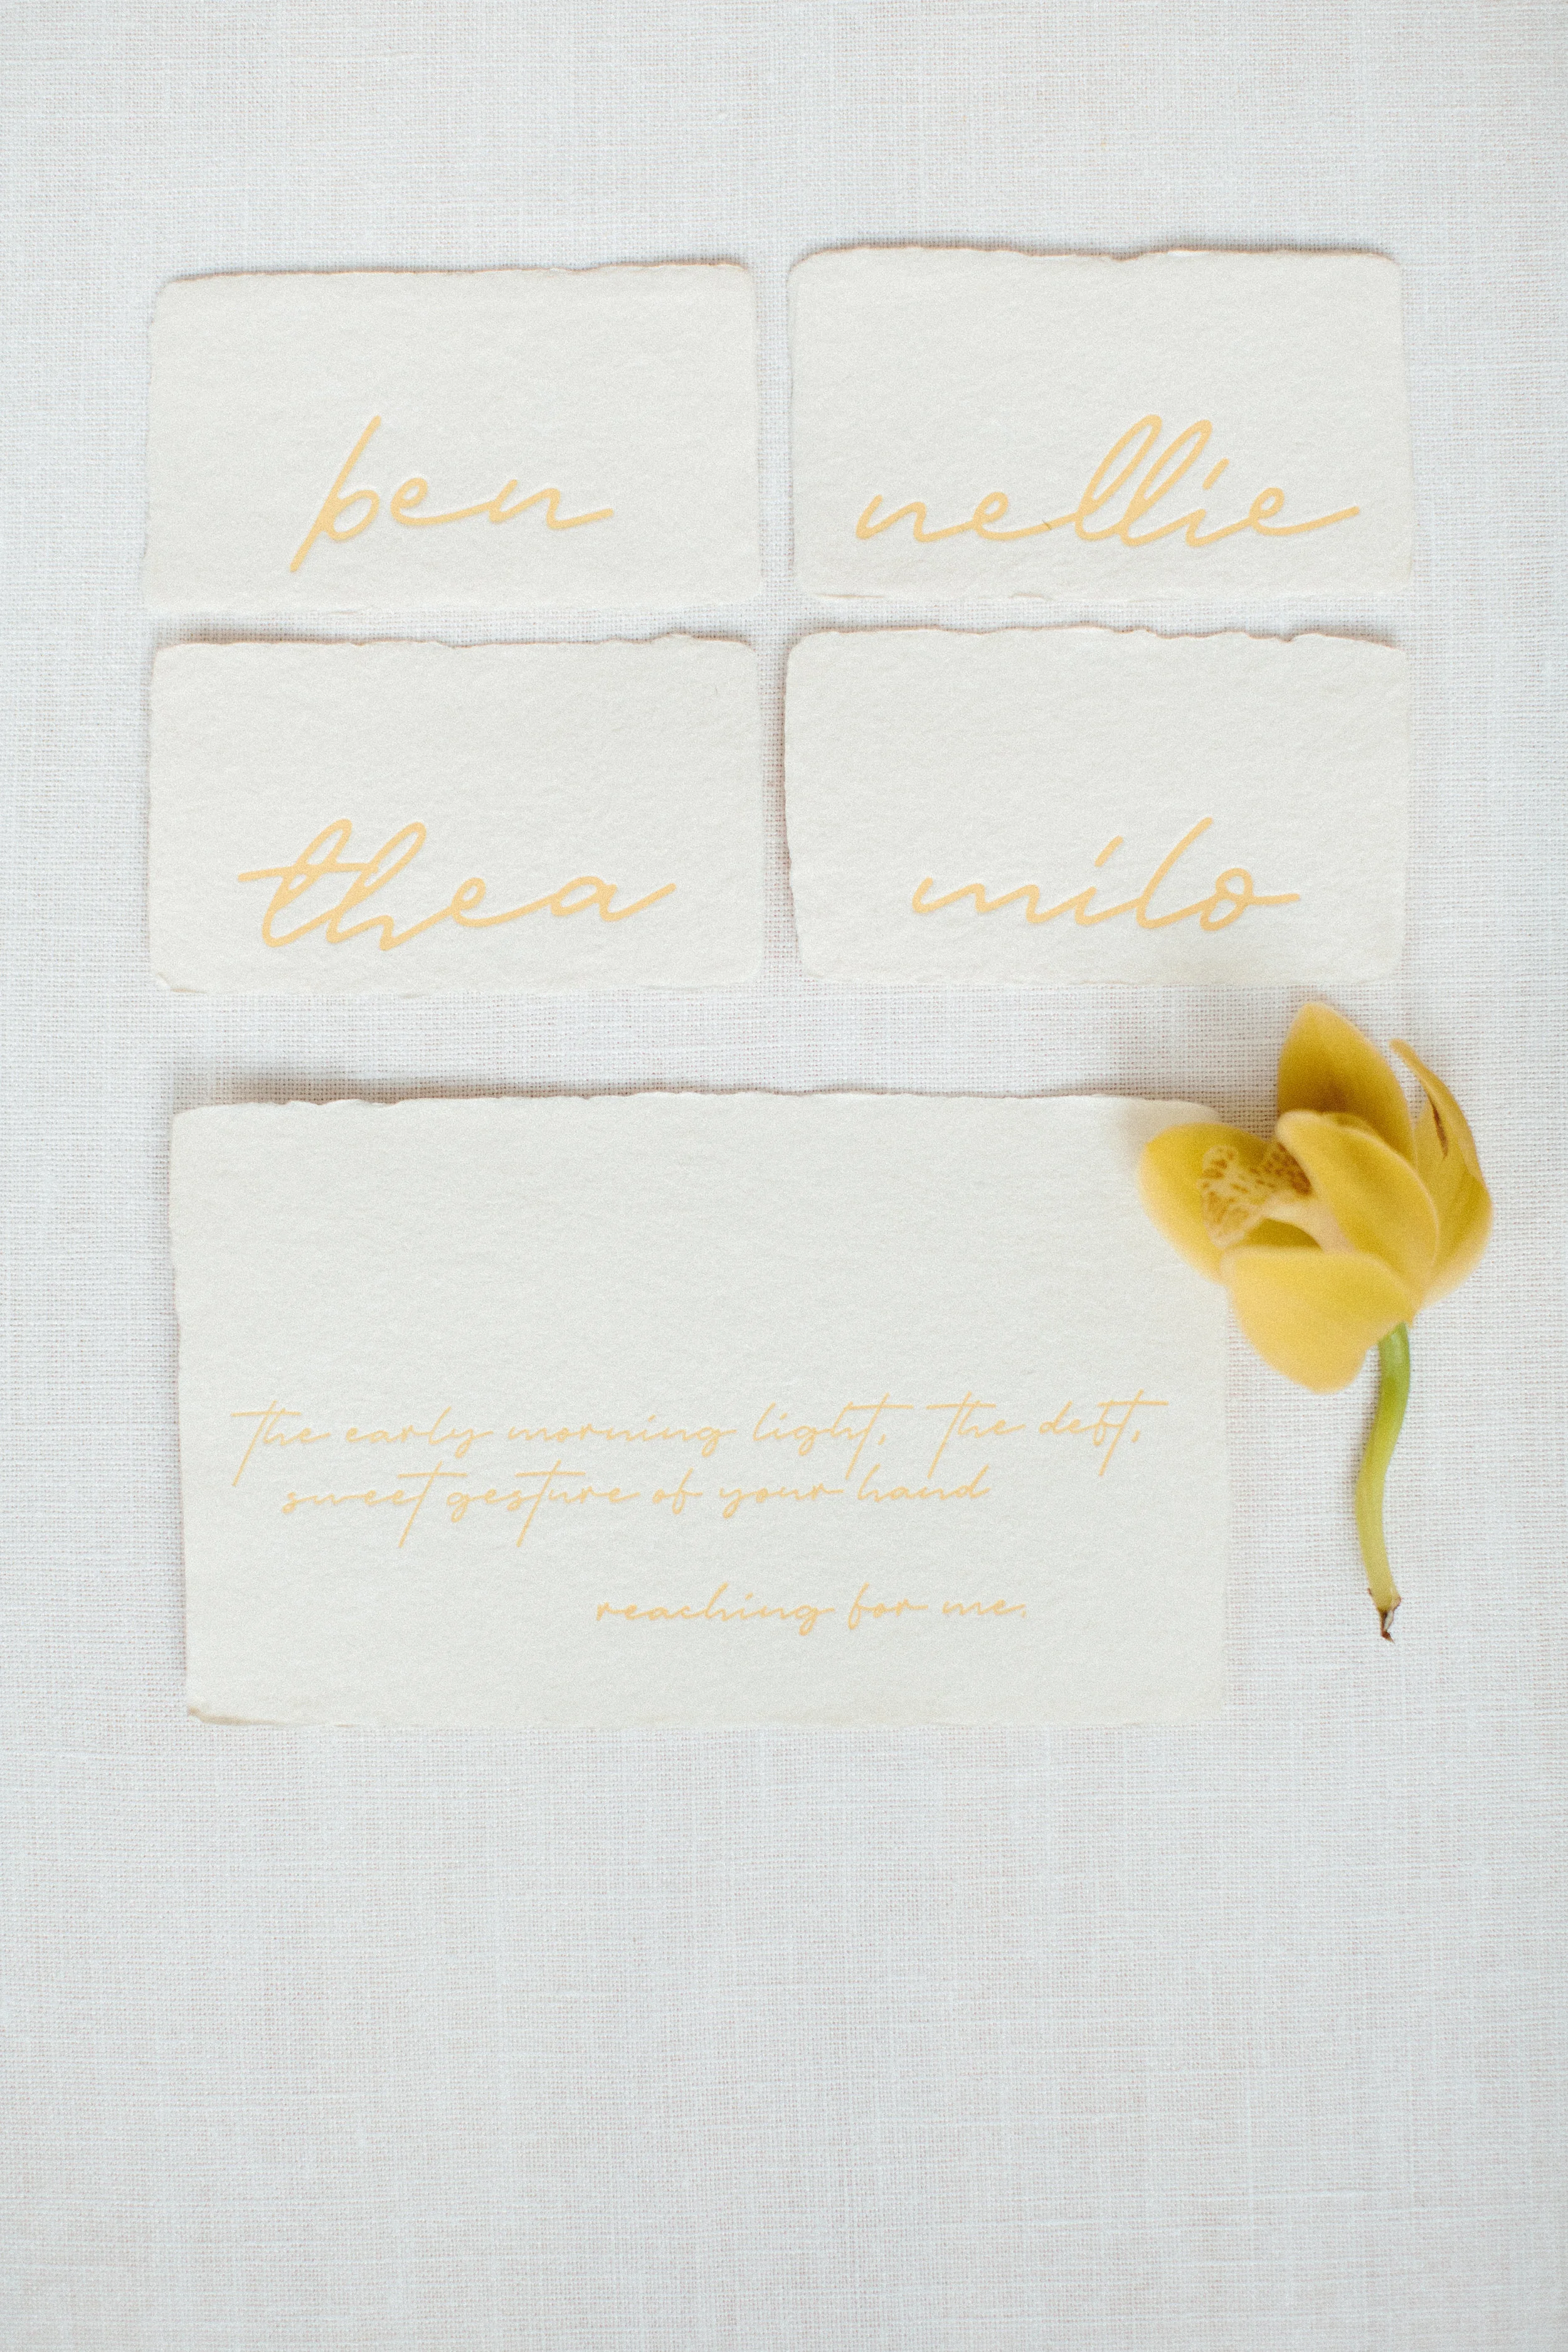 ben
nellie
thea
milo
the early morning light, the deft,
sweet gesture of your hand
reaching for me.